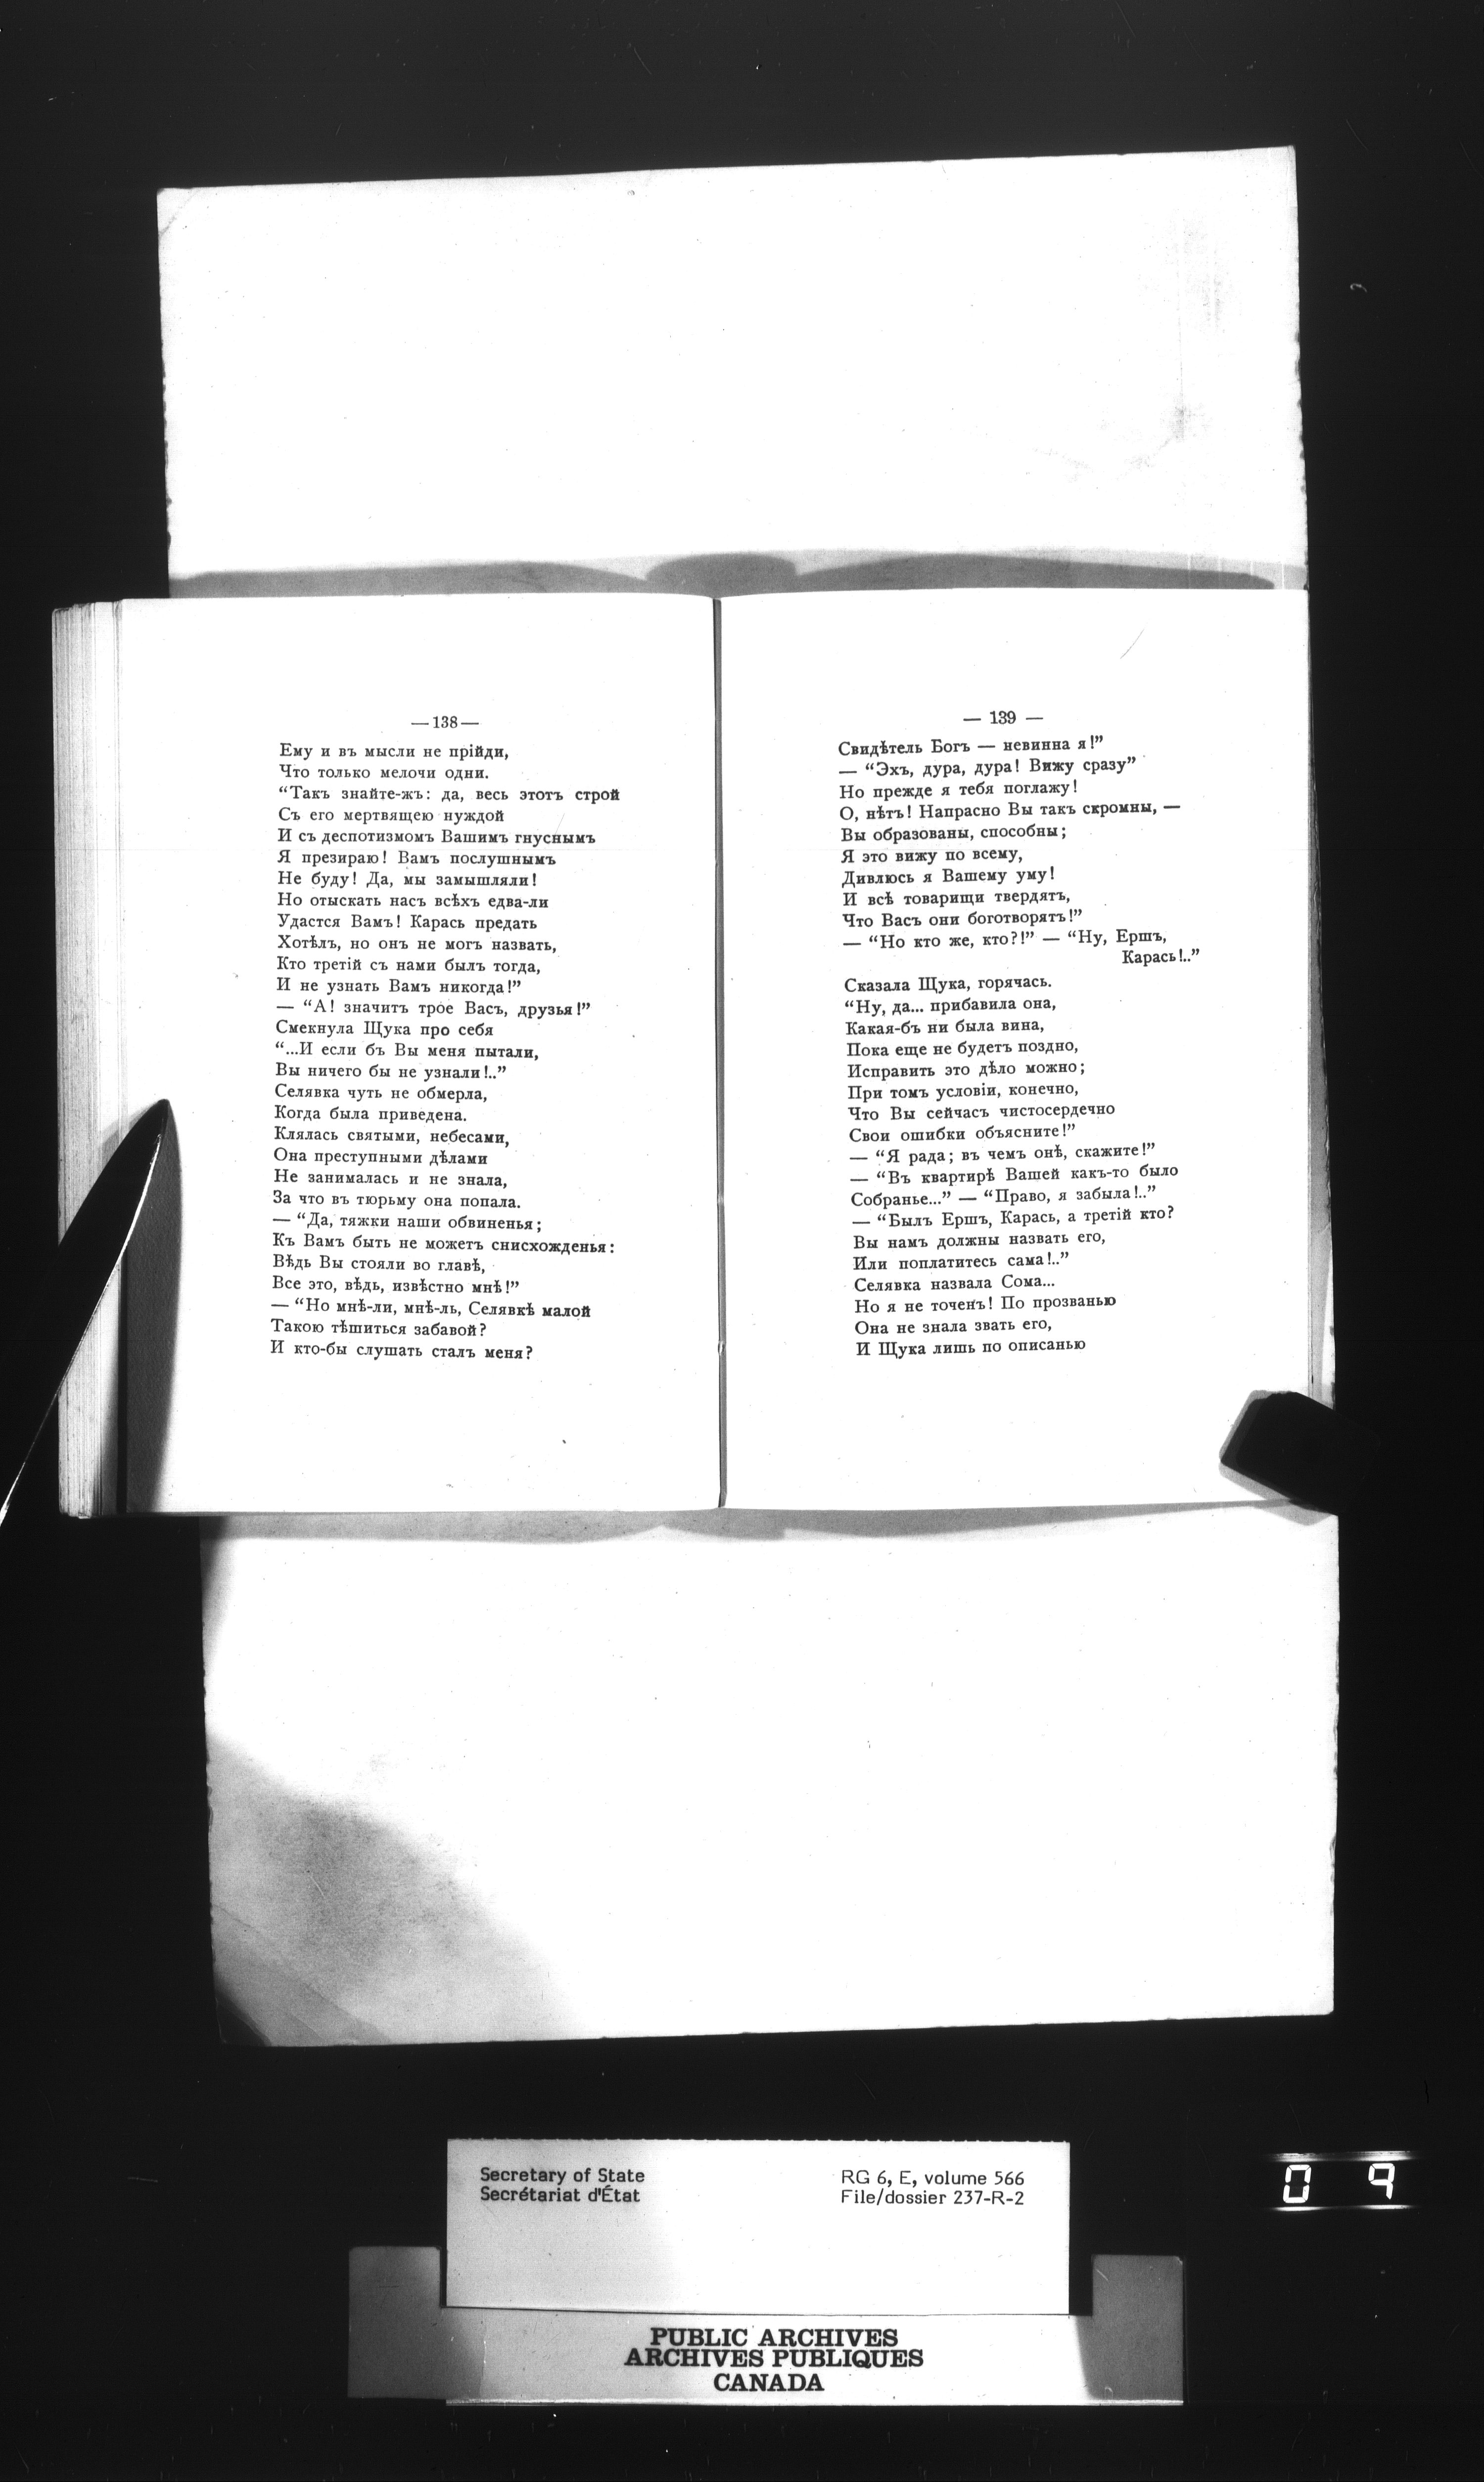 —138—
Ему и въ мысли не прійди,
Что только мелочи одни.
“Такъ знайте-жъ: да, весь этотъ строй
Съ его мертвящею нуждой
И съ деспотизмомъ Вашимъ гнуснымъ
Я презираю! Вамъ послушнымъ
Не буду! Да, мы замышляли!
Но отыскать насъ всѣхъ едва-ли
Удастся Вамъ! Карась предать
Хотѣлъ, но онъ не могъ назвать,
Кто третій съ нами былъ тогда,
И не узнать Вамъ никогда!”
— “А! значитъ трое Васъ, друзья!”
Смекнула Щука про себя
“...И если бъ Вы меня пытали,
Вы ничего бы не узнали!..”
Селявка чуть не обмерла,
Когда была приведена.
Клялась святыми, небесами,
Она преступными дѣлами
Не занималась и не знала,
За что въ тюрьму она попала.
— “Да, тяжки наши обвиненья;
Къ Вамъ быть не можетъ снисхожденья:
Вѣдь Вы стояли во главѣ,
Все это, вѣдь, извѣстно мнѣ!”
— “Но мнѣ-ли, мнѣ-ль, Селявкѣ малой
Такою тѣшиться забавой?
И кто-бы слушать сталъ меня?
— 139 —
Свидѣтель Богъ — невинна я!”
— “Эхъ, дура, дура! Вижу сразу”
Но прежде я тебя поглажу!
О, нѣтъ! Напрасно Вы такъ скромны, —
Вы образованы, способны;
Я это вижу по всему,
Дивлюсь я Вашему уму!
И всѣ товарищи твердятъ,
Что Васъ они боготворятъ!”
— “Но кто же, кто?!” — “Ну, Ершъ,
Карась!..”
Сказала Щука, горячась.
“Ну, да... прибавила она,
Какая-бъ ни была вина,
Пока еще не будетъ поздно,
Исправить это дѣло можно;
При томъ условіи, конечно,
Что Вы сейчасъ чистосердечно
Свои ошибки объясните!”
— “Я рада; въ чемъ онѣ, скажите!”
— “Въ квартирѣ Вашей какъ-то было
Собранье...” — “Право, я забыла!..”
— “Былъ Ершъ, Карась, а третій кто?
Вы намъ должны назвать его,
Или поплатитесь сама!..”
Селявка назвала Сома...
Но я не точенъ! По прозванью
Она не знала звать его,
И Щука лишь по описанью
Secretary of State
Secrétariat d'État
RG 6, E, volume 566
File/dossier 237-R-2
0 9
PUBLIC ARCHIVES
ARCHIVES PUBLIQUES
CANADA